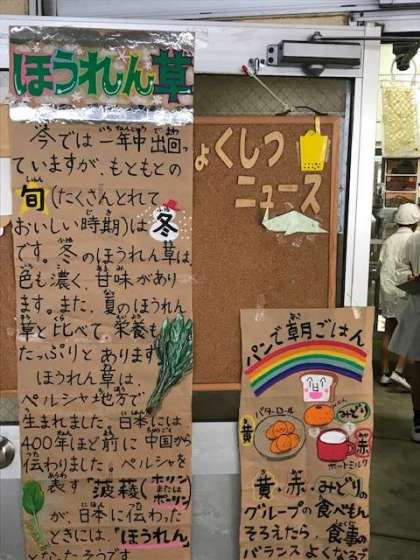 ほうれん草
今では一年中出回っ
ていますが、もともとの
旬(たくさんとれて
おいしい時期)は冬
です。冬のほうれん草は、
色も濃く、甘味があり
ます。また、夏のほうれん
草と比べて栄養も
たっぷりとあります。
ほうれん草は、
ペルシャ地方で
生まれました。日本には
400年ほど前に中国から
伝わりました。ペルシャを
表す"菠薐(ホリン またはポーリン)
が、日本に伝わった
ときには、「ほうれん」
となったそうです
ょくしつ
ニュース
パンで朝ごはん
黄
バターロール
みどり
赤
ホットミルク
黄・赤・みどりの
グループの食べもん
そろえたら、食事の
バランスよくなるで